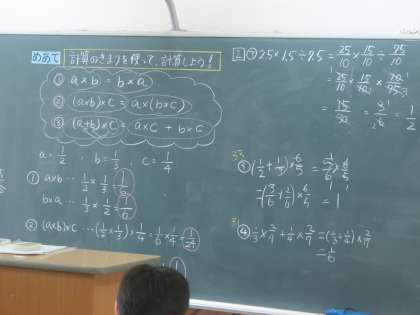 めあて 計算のきまりを使って、計算しよう!
① a×b=b×a
② (a×b)×C=a×(b×C)
③ (a+b)×C=a×C+b×C
a=1/2 , b=1/3 , C=1/4
① a×b … 1/2×1/3=1/6
b×a … 1/3×1/2=1/6
② (a×b)×C …(1/2×1/3)×1/4=1/6×1/4=1/24
2 ⑦ 2.5×1.5÷7.5=25/10×15/10÷75/10
=25/10×15/10×10/75
=1/2
(1/2+1/3)×6/5=5/6×6/5
=(3/6+2/6)×6/5=1
④ 1/3×2/7+1/4×2/7=(1/3+1/4)×2/7
=1/6